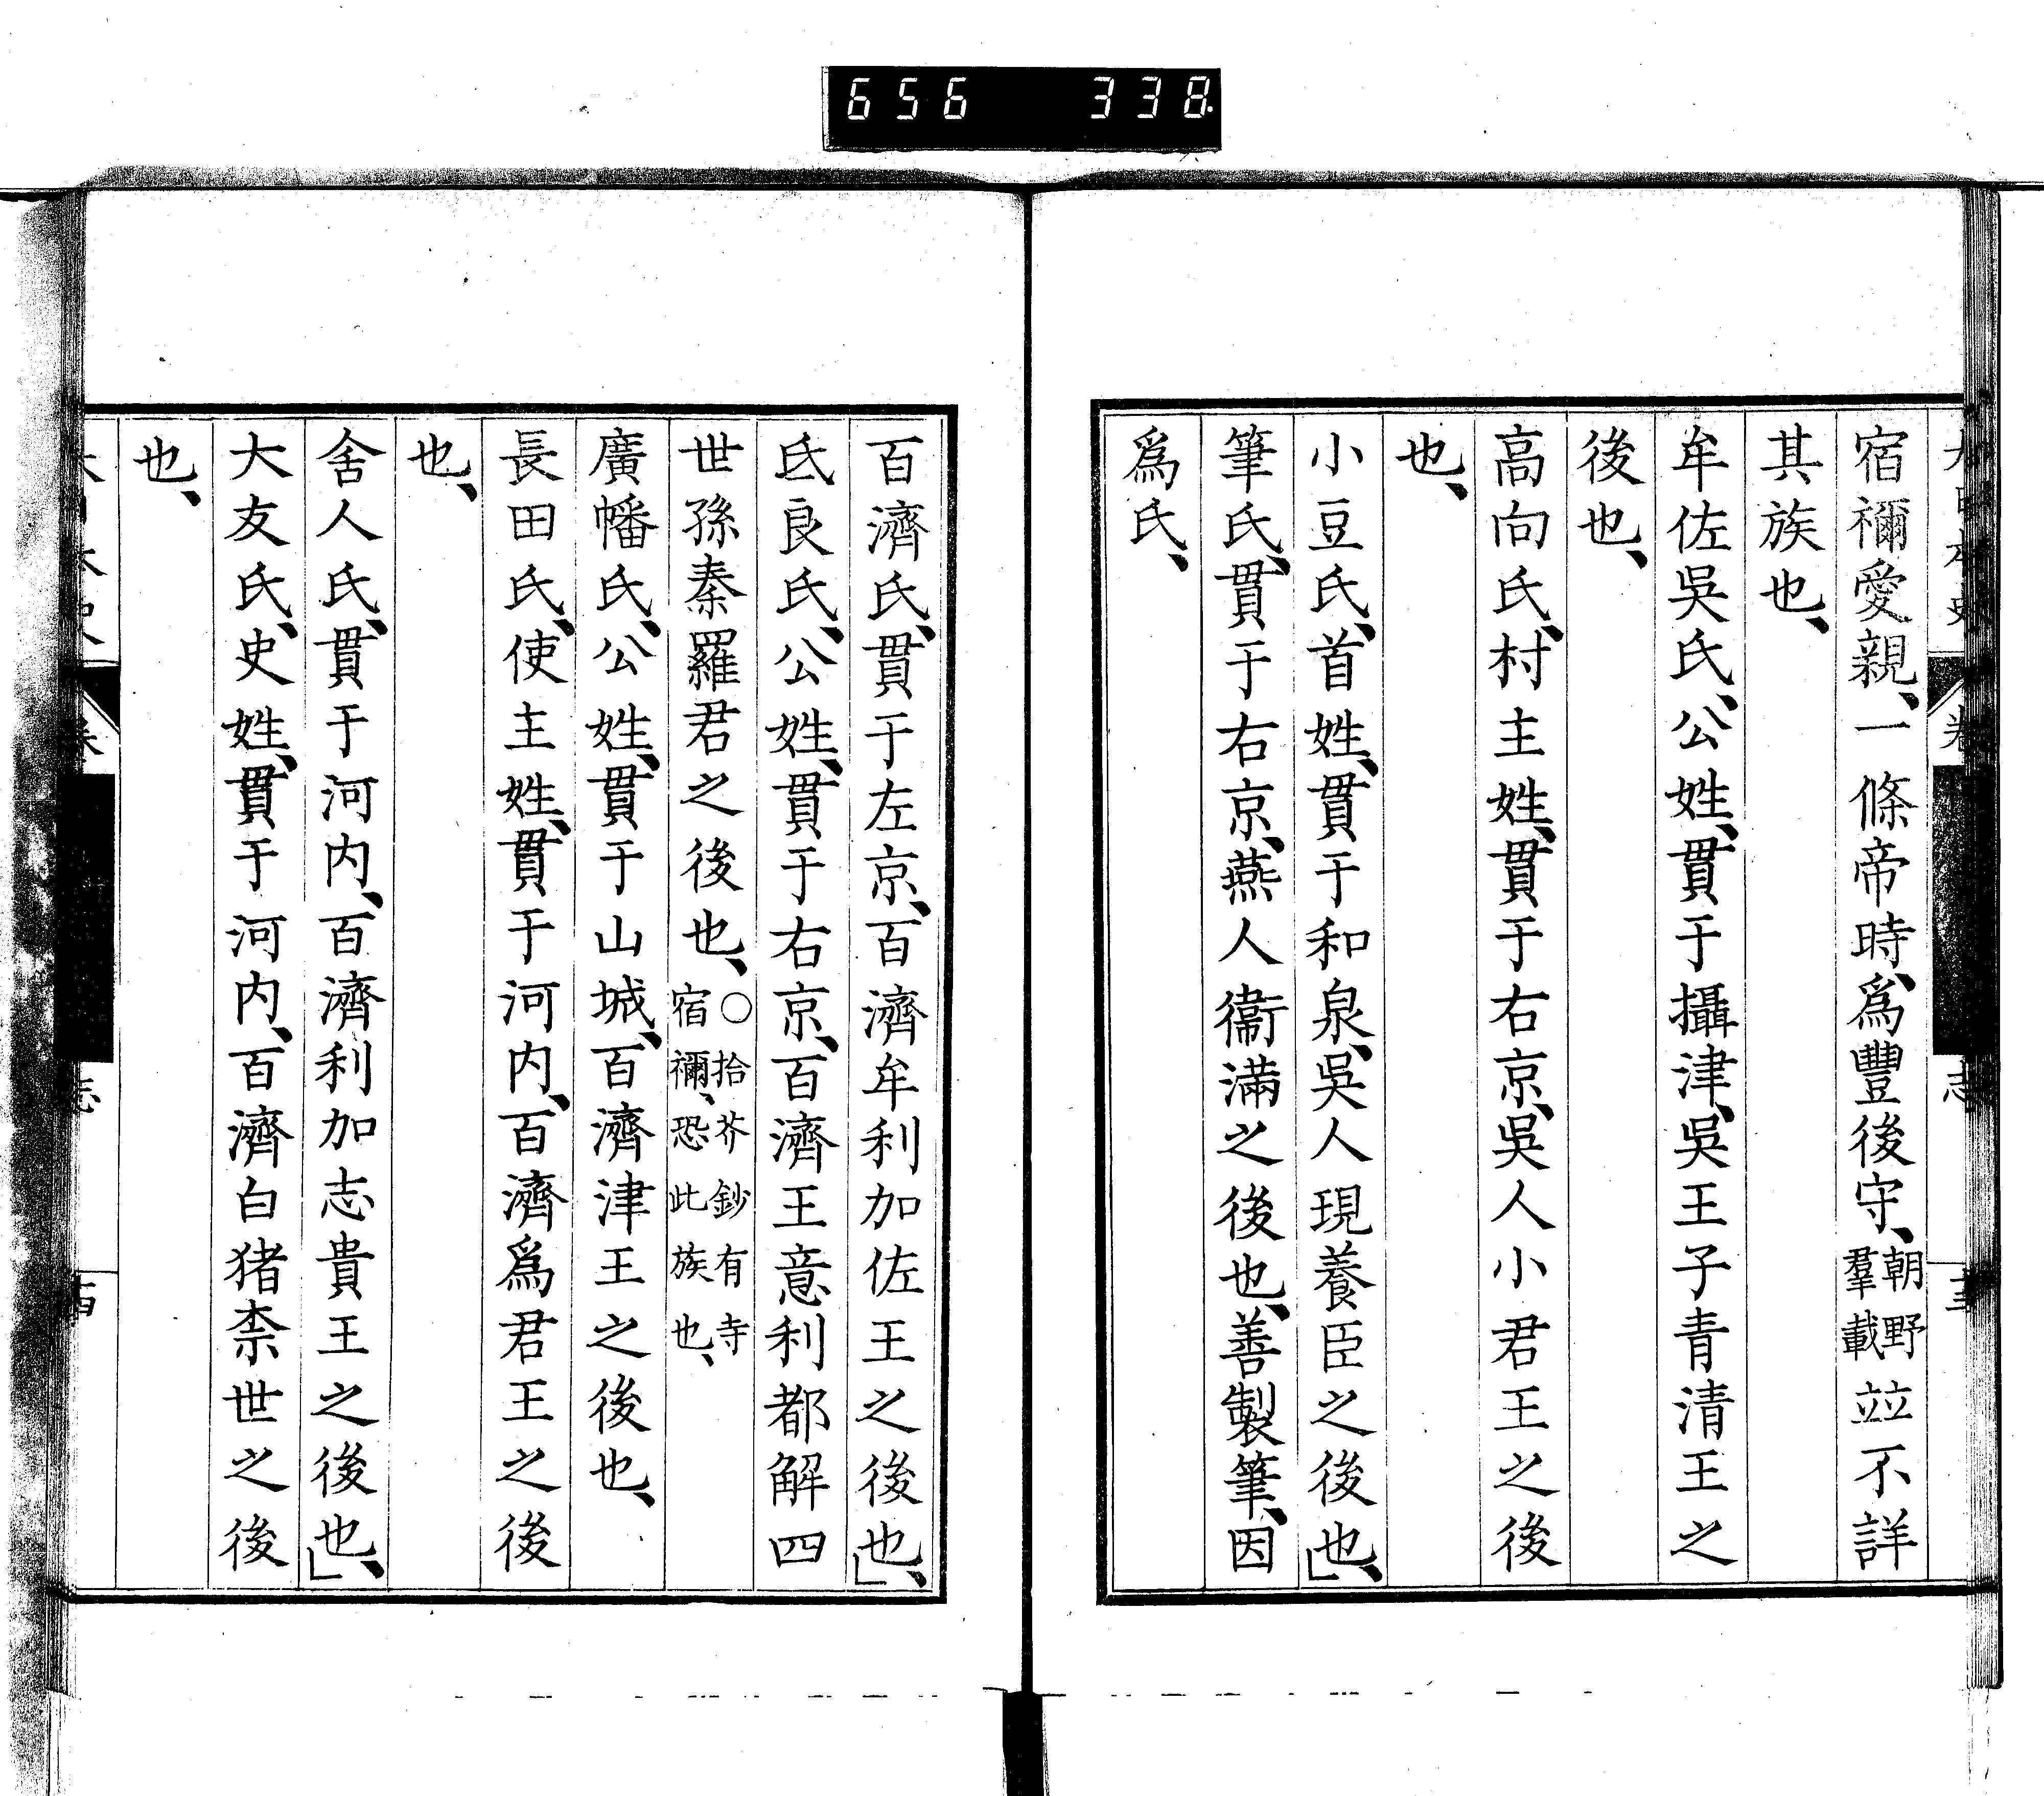 656 338
宿禰愛親、一條帝時、爲豐後守、朝野羣載竝不詳
其族也、
牟佐吳氏、公姓、貫于攝津、吳王子青清王之
後也、
高向氏、村主姓、貫于右京、吳人小君王之後
也、
小豆氏、首姓、貫于和泉、吳人現養臣之後也、」
筆氏、貫于右京、燕人衞滿之後也、善製筆、因
爲氏、
百濟氏、貫于左京、百濟牟利加佐王之後也、」
氐良氏、公姓、貫于右京、百濟王意利都解四
世孫秦羅君之後也、○拾芥鈔有寺宿禰、恐此族也、
廣幡氏、公姓、貫于山城、百濟津王之後也、
長田氏、使主姓、貫于河内、百濟爲君王之後
也、
舍人氏、貫于河内、百濟利加志貴王之後也、」
大友氏、史姓、貫于河内、百濟白猪柰世之後
也、